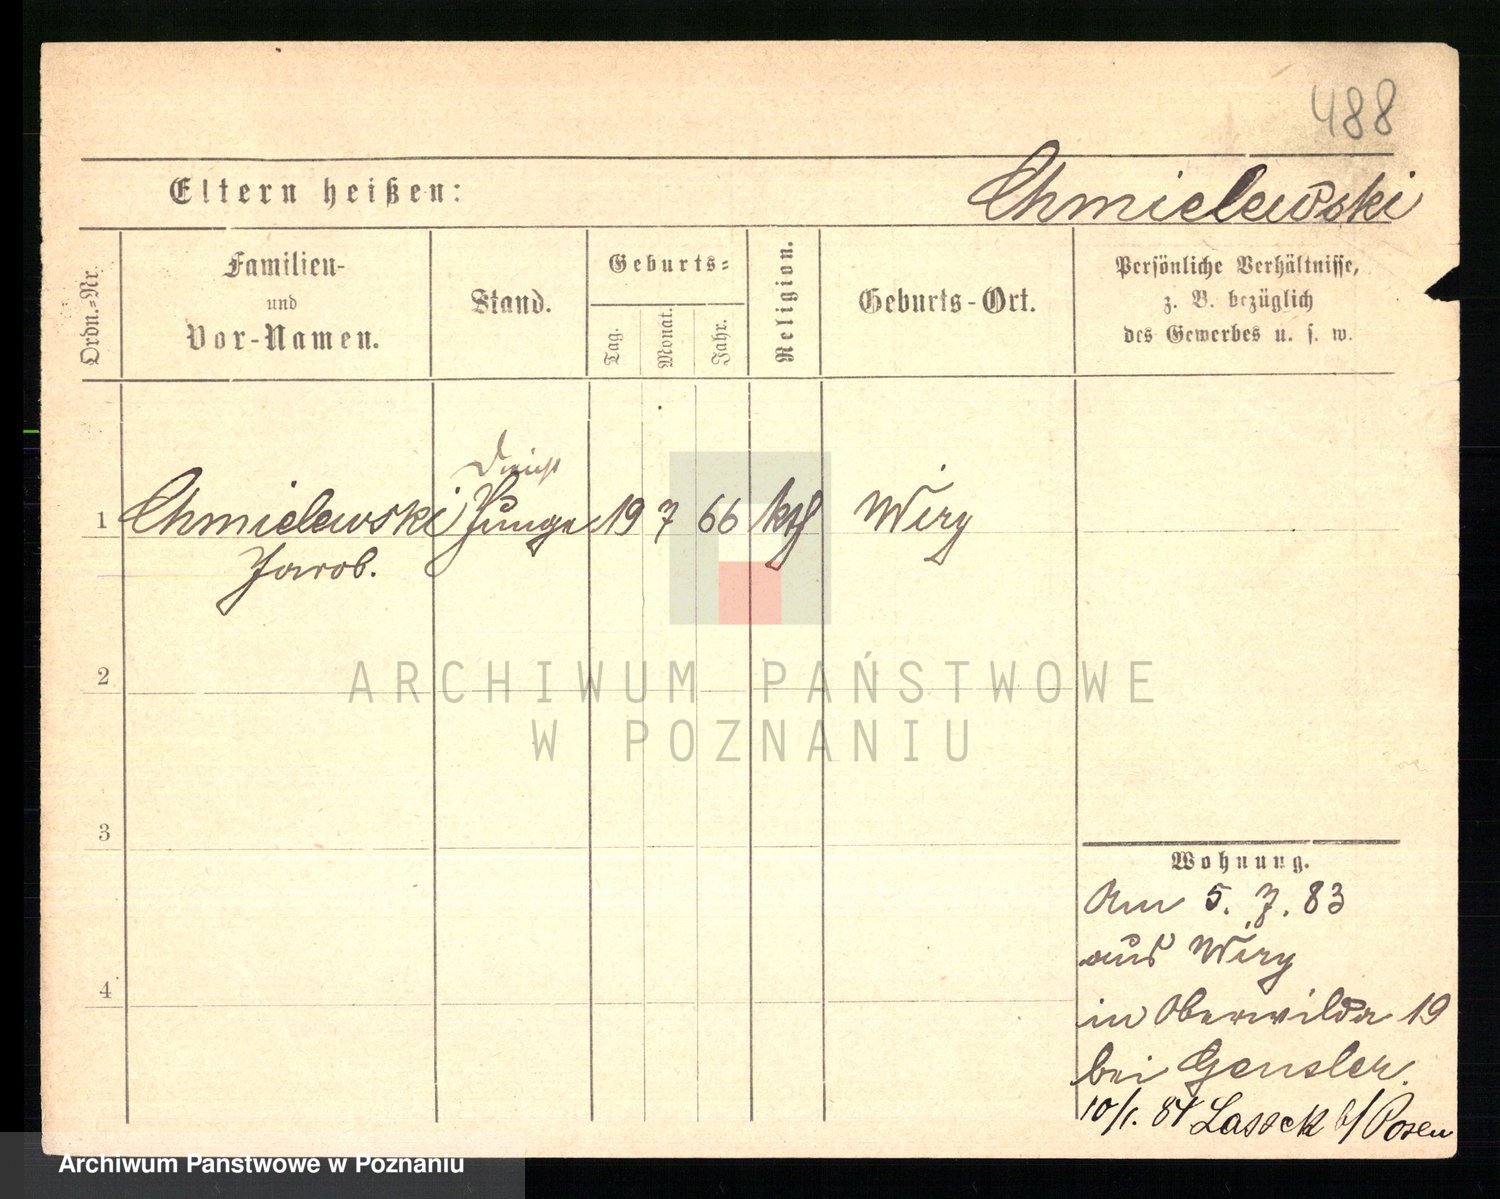 488
Eltern heißen:
Chmielewski
Ordn.-Nr.
Familien-
und
Vor-Namen.
Stand.
Geburts-
Tag.
Monat.
Jahr.
Religion.
Geburts-Ort.
Persönliche Verhältnisse,
z. B. bezüglich
des Gewerbes u. s. w.
1 Chmielewski Junge 19 7 66 kth Wiry
Jacob.
2
3
4
Wohnung.
Am 5. 7. 83
aus Wiry
in Oberwilda 19
bei Gensler.
10/1. 84 Lasseck b/Posen
ARCHIWUM PAŃSTWOWE
W POZNANIU
Archiwum Panstwowe w Poznaniu